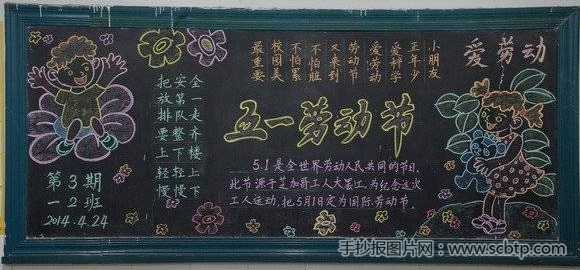 爱劳动
小朋友
正年少
爱科学
爱劳动
劳动节
又来到
不怕脏
不怕累
校园美
最重要
把安全
放第一
排队走
要整齐
上下楼
轻轻上
慢慢下
五一劳动节
5.1是全世界劳动人民共同的节日,
此节源于芝加哥工人大罢工,为纪念这次
工人运动,把5月1日定为国际劳动节.
第3期
一2班
2014.4.24
手抄报图片网:www.scbtp.com